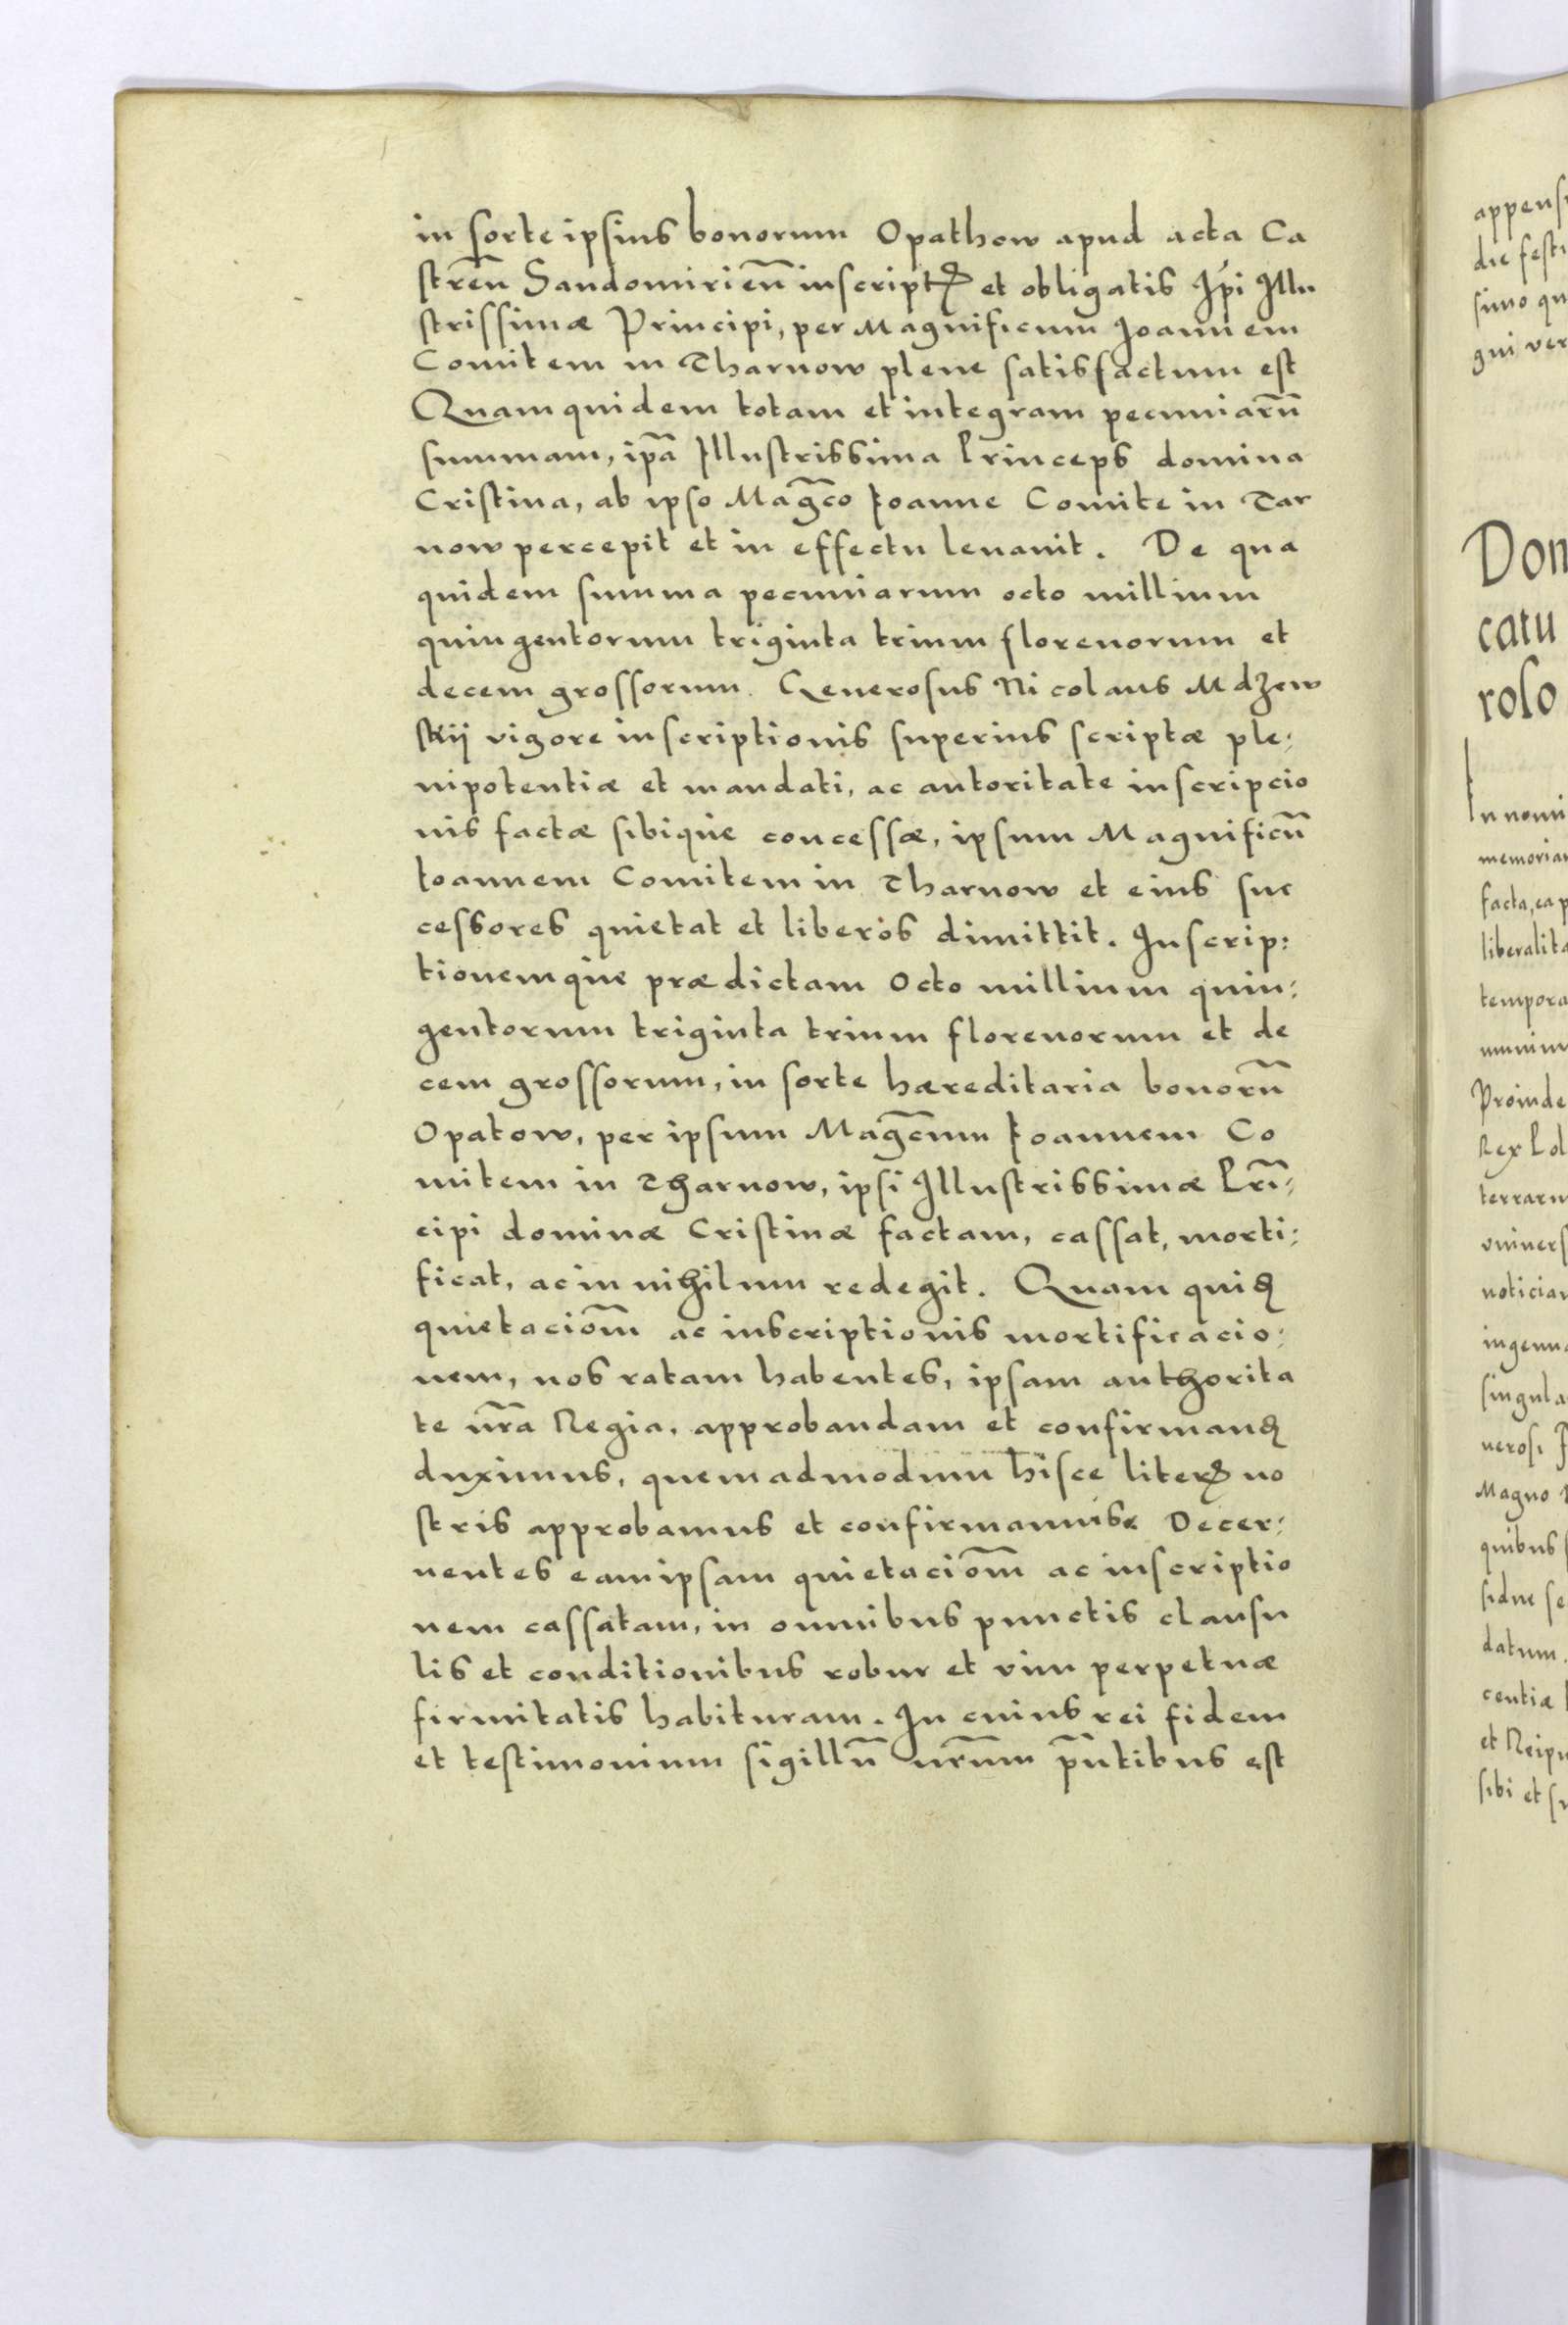 in sorte ipsius bonorum Opathow apud acta Ca
streñ Sandomirieñ inscriptꝭ et obligatis Ip̃i Illu
strissimæ Principi, per Magnificum Joannem
Comitem in Tharnow plene satisfactum est
Quamquidem totam et integram pecuniarũ
summam, ip̃a Illustrissima Princeps domina
Cristina, ab ipso Mag̃co Joanne Comite in Tar
now percepit et in effectu leuauit. De qua
quidem summa pecuniarum octo millium
quingentorum triginta trium florenorum et
decem grossorum. Generosus Nicolaus Mdzew
skij vigore inscriptionis superius scriptæ ple:
nipotentiæ et mandati, ac autoritate inscripcio
nis factæ sibique concessæ, ipsum Magnificũ
Ioannem Comitem in Tharnow et eius suc
cessores quietat et liberos dimittit. Inscrip:
tionemque prædictam Octo millium quin:
gentorum triginta trium florenorum et de
cem grossorum, in sorte hæreditaria bonorũ
Opatow, per ipsum Mag̃cum Joannem Co
mitem in Tharnow, ipsi Illustrissimæ Prĩ:
cipi dominæ Cristinæ factam, cassat, morti:
ficat, ac in nihilum redegit. Quam quidꝫ
quietaciom̃ ac inscriptionis mortificacio:
nem, nos ratam habentes, ipsam authorita
te nr̃a Regia, approbandam et confirmandꝫ
duximus, quemadmodum hisce literꝭ no
stris approbamus et confirmamus. Decer:
nentes eamipsam quietaciom̃ ac inscriptio
nem cassatam, in omnibus punctis clausu
lis et conditionibus robur et vim perpetuæ
firmitatis habituram. In cuius rei fidem
et testimonium sigillũ nr̃um p̃ntibus est
appens
die festi
simo qu
gni ver
Don
catu
roso
In nomi
memoriam
facta, ea p
liberalita
tempora
munim
Proinde
Rex Pol
terraru
vniuers
noticiam
ingenua
singula
nerosi J
Magno
quibus
sidue se
datum.
centiæ
et Reipu
sibi et su